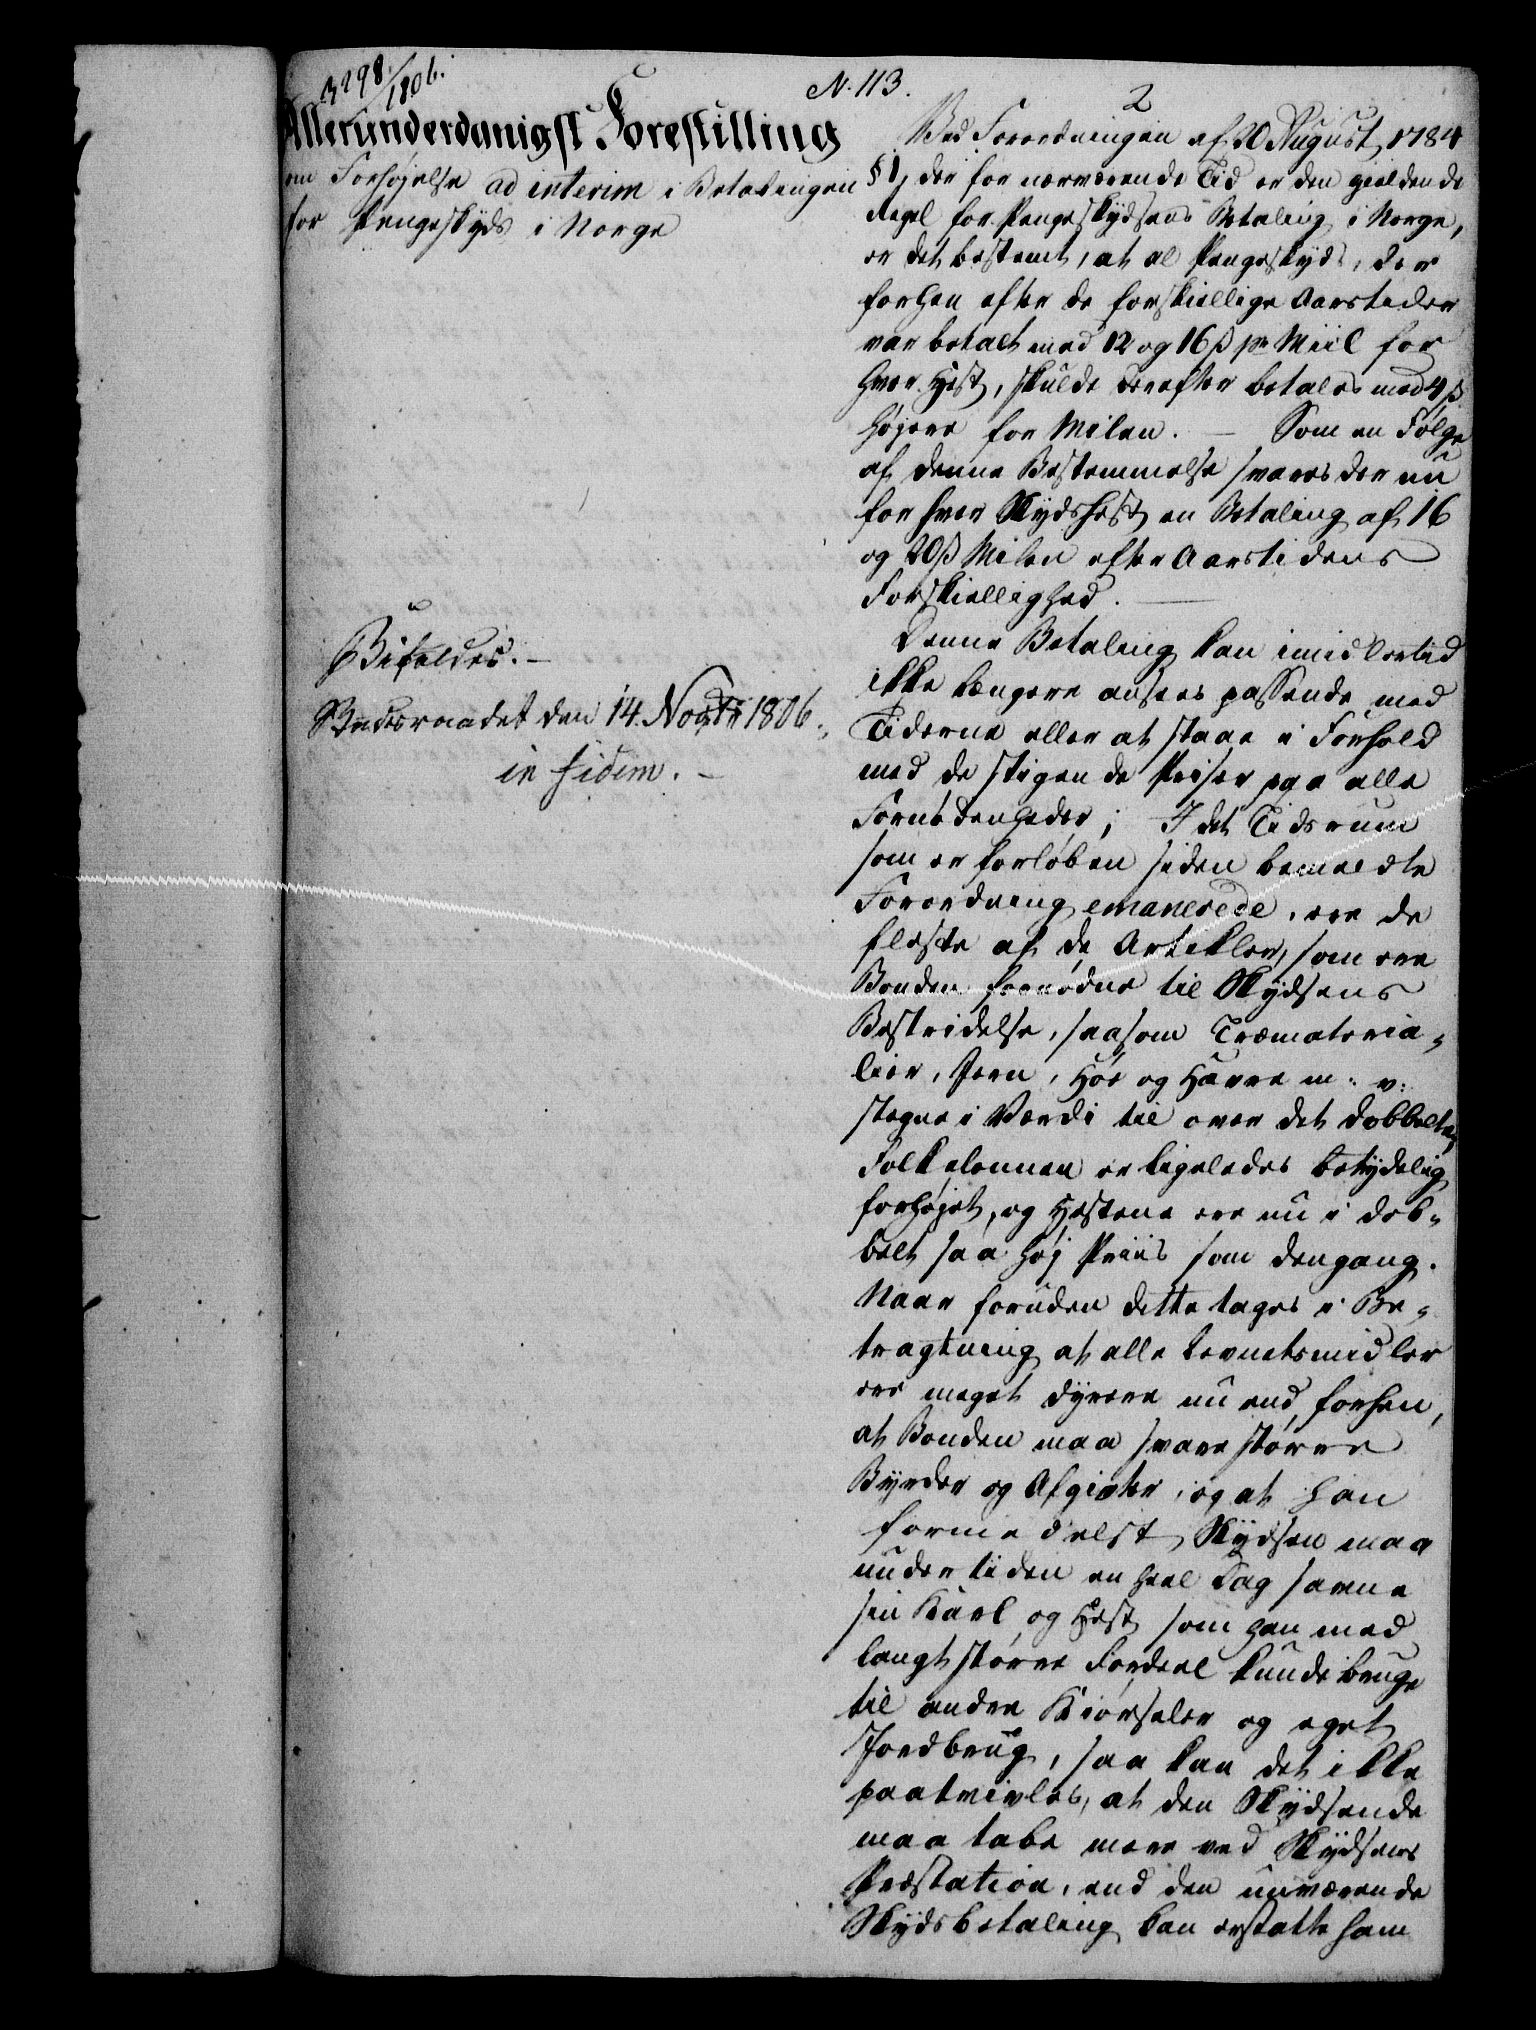 3298/1806.
N. 113.
2
Allerunderdanigst Forestilling
om Forhøjelse ad interim i Betalingen
for Pengeskyds i Norge
Bifaldes. –
Statsraadet den 14. Novbr 1806.
in fidem. –
Ved Forordningen af 20 August 1784
§ 1, der for nærværende Tid er den gieldende
Regel for Pengeskydsens Betaling i Norge,
er det bestemt, at al Pengeskyds, der
forhen efter de forskiellige Aarstider
var betalt med 12 og 16 ß pr Miil for
hver Hest, skulde derefter betales med 4 ß
høiere for Milen. – Som en Følge
af denne Bestemmelse svares der nu
for hver Skydshest en Betaling af 16
og 20 ß Milen efter Aarstidens
Forskiellighed. –
Denne Betaling kan imidlertid
ikke længere ansees passende med
Tiderne eller at staae i Forhold
med de stigende Priser paa alle
Fornødenheder; I det Tidsrum
som er forløben siden bemeldte
Forordning emanerede, ere de
fleste af de Artikler, som ere
Bonden fornødne til Skydsens
Bestridelse, saasom Træmateria-
lier, Jern, Høe og Havre m. v.
stegne i Værdi til over det dobbelte,
Folkelønnen er ligeledes betydelig
forhøjet, og Hestene ere nu i dob-
belt saa høj Priis som dengang.
Naar foruden dette tages i Be-
tragtning at alle Levnetsmidler
ere meget dyrere nu end forhen,
at Bonden maa svare større
Byrder og Afgivter, og at han
formedelst Skydsen maa
undertiden en heel Dag savne
sin Karl og Hest som han med
langt større Fordeel kunde bruge
til andre Kiørseler og eget
Jordbrug, saa kan det ikke
paatvivles, at den Skydsende
maa tabe mere ved Skydsens
Præstation, end den nuværende
Skydsbetaling kan erstatte ham